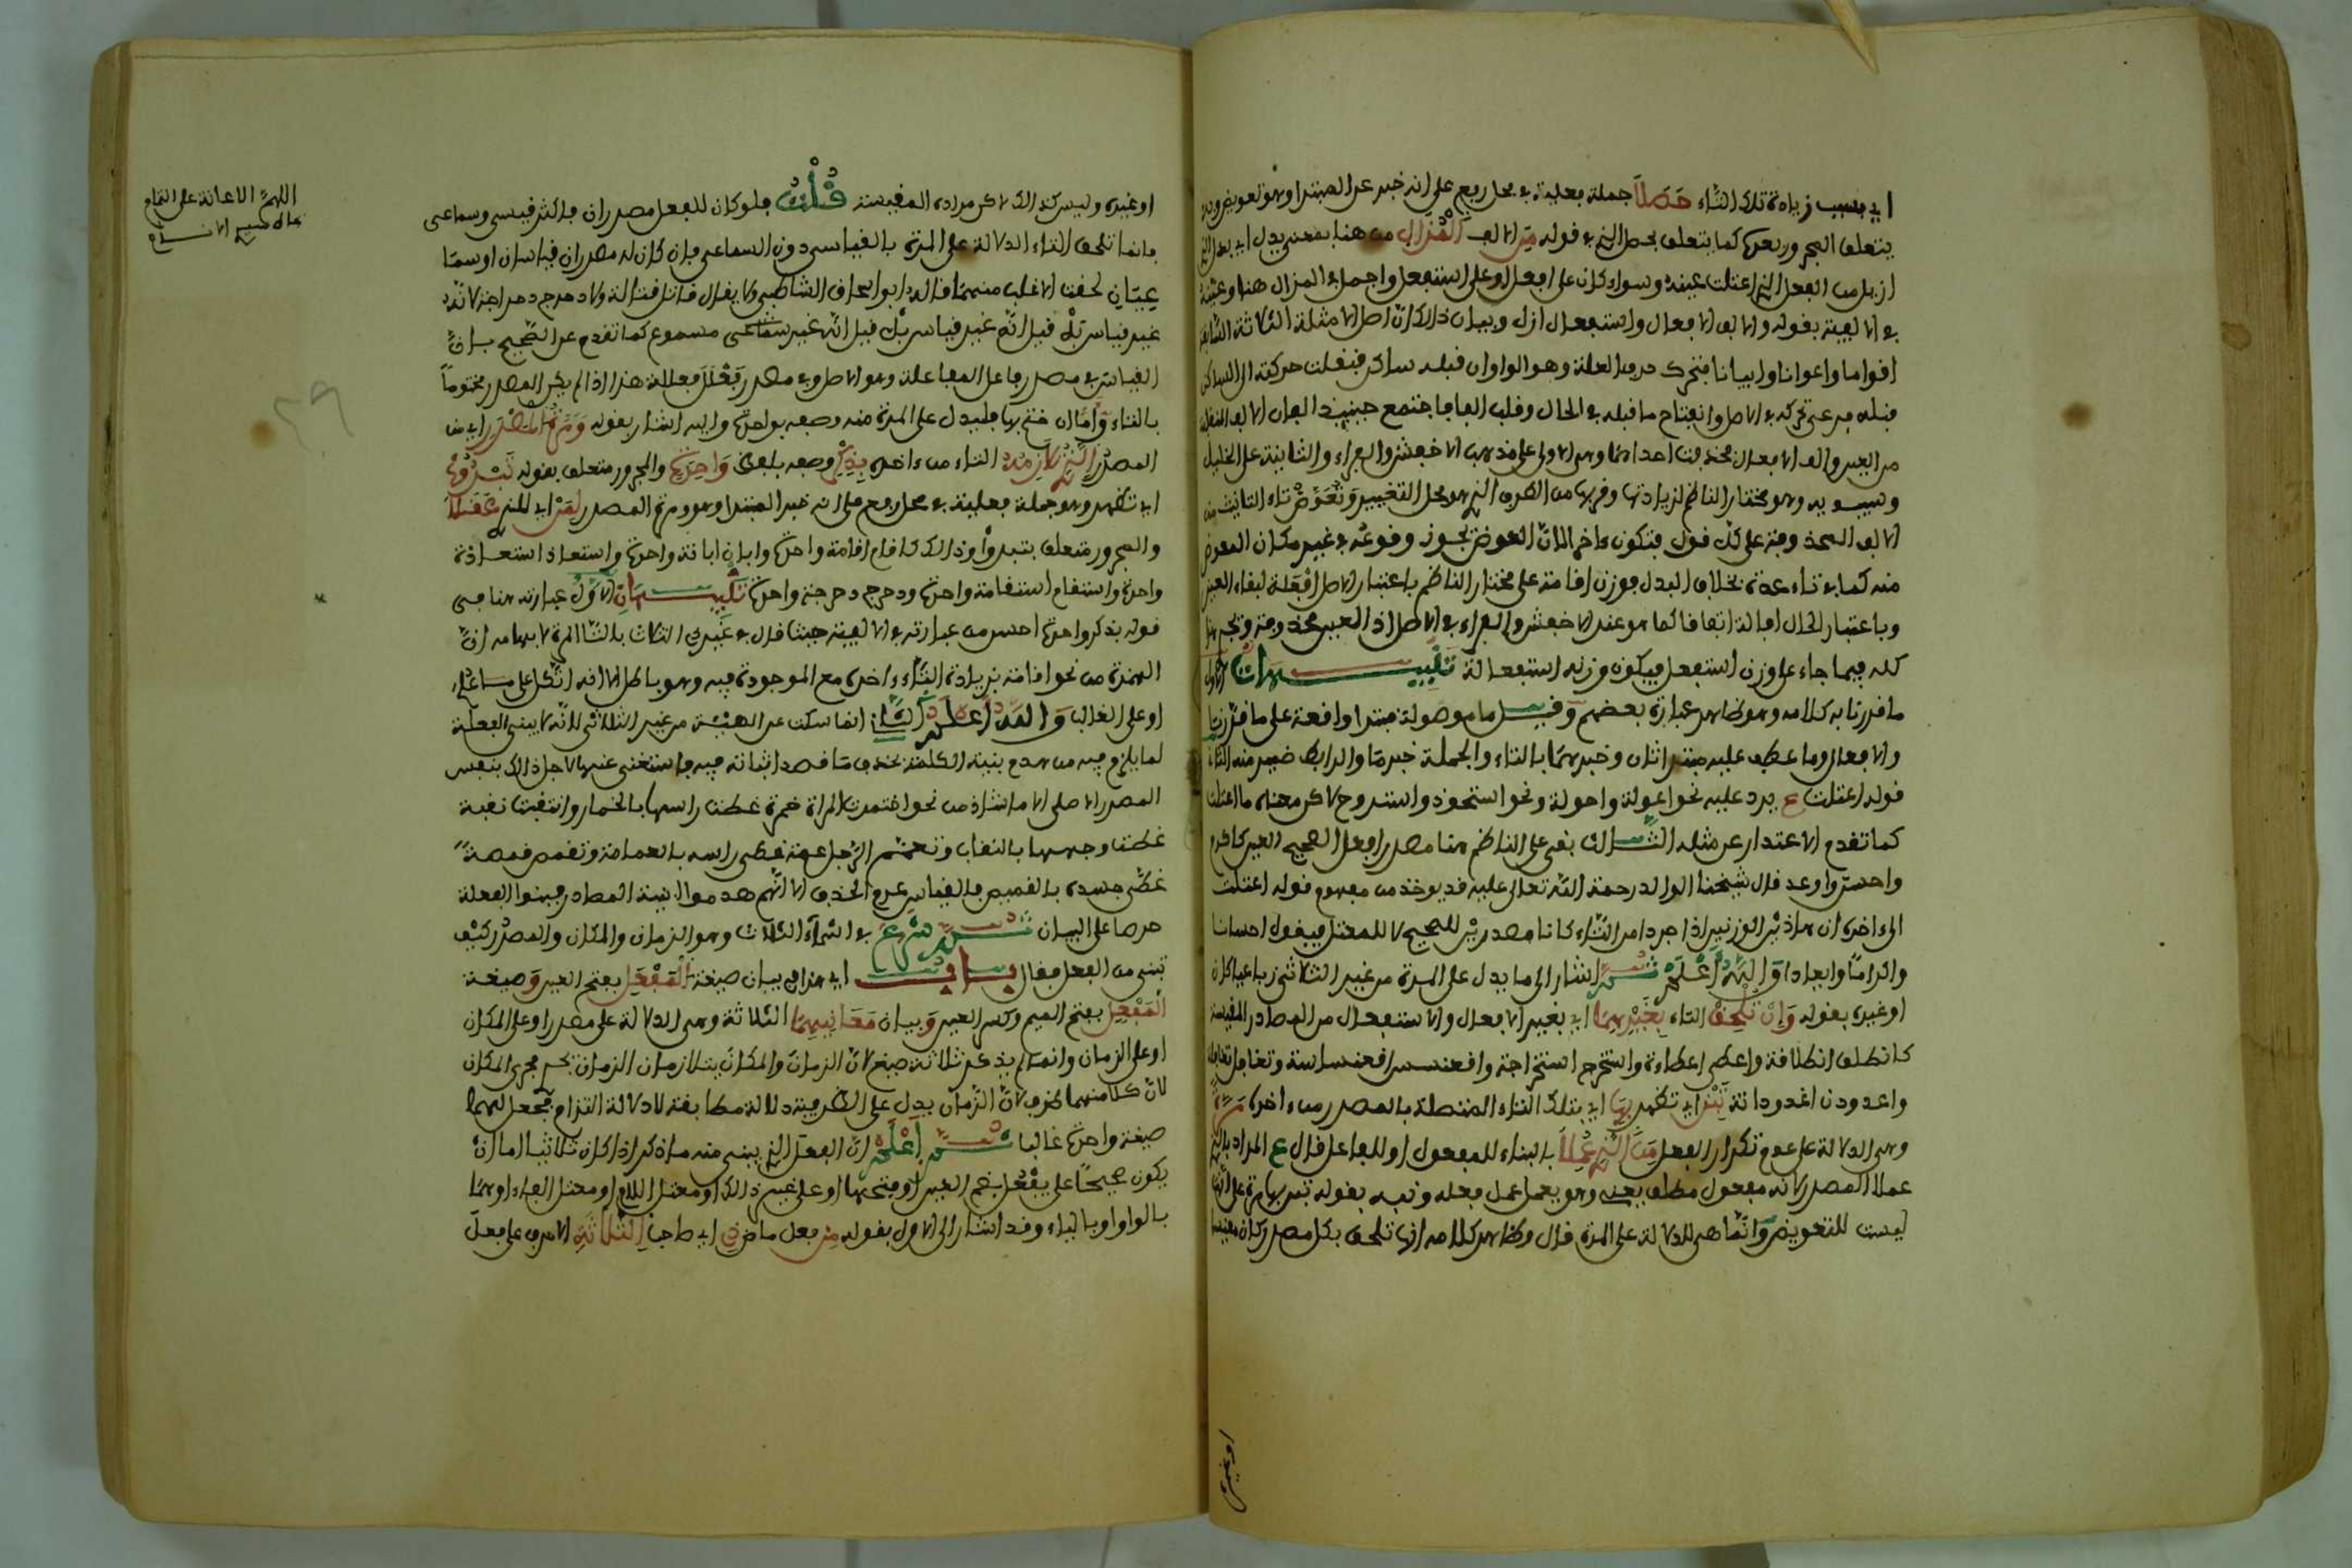 اي بسبب زيادة تلك التاء حصلا جملة فعلية في محل رفع على انه خبر عن المبتدا وهو تعويض وبه
يتعلق المجرور بعن كما يتعلق بحصل الذي في قوله من الالف المزال من هنا بمعنى بدل اي بدل الذي
ازيل من الفعل الذي اعتلت عينه وسواء كان على افعل او على استفعل واجمل في المزال هنا وعينه
في الالفية بقوله والف الافعال واستفعال ازل وبيان ذلك ان اصل الامثلة الثلاثة السابقة
اقواما واعوانا وابيانا فتحرك حرف العلة وهو الواو ان قبله ساكن فنقلت حركته الى الساكن
قبله فرعي تحركه في الاصل وانفتاح ما قبله في الحال وقلب الفا فاجتمع حينئذ الفان الالف المنقلبة
من العين والف الافعال فحذفت احداهما وهي الاولى على مذهب الاخفش والفراء والثانية على الخليل
وسيبويه وهو مختار الناظم لزيادتها وقربها من الطرف الذي هو محل التغيير وتعوض تاء التانيث من
الالف المحذوفة على كل قول فتكون ءاخرا لان العوض يجوز وقوعه في غير مكان المعوض
منه كما في تاء عدة بخلاف البدل فوزن اقامة على مختار الناظم باعتبار الاصل افعلة لبقاء العين
وباعتبار الحال افالة اتفاقا كما هو عند الاخفش والفراء في الاصل اذ العين محذوفة ويجري هذا
كله فيما جاء على وزن استفعل فيكون وزنه استفعالة تنبيهات الاول
ما قررنا به كلامه وهو ظاهر عبارة بعضهم وقيل ما موصولة مبتدا واقعة على ما قررنا
والافعال وما عطف عليه مبتدا ثان وخبرهما بالتاء والجملة خبر ما والرابط ضمير منه الثاني
قوله اعتلت ع يرد عليه نحو اعولة واحولة ونحو استحوذ واستروح لاكن معناه ما اعتلت
كما تقدم الاعتذار عن مثله الثالث بقي على الناظم هنا مصدر افعل الصحيح العين كاكرم
واحسن واوعد قال شيخنا الوالد رحمة الله تعالى عليه قد يوخذ من مفهوم قوله اعتلت
الى ءاخره ان هاذين الوزنين اذا جردا من التاء كانا مصدرين للصحيح لا للمعتل فيقول احسانا
واكراما وابعادا والله أعلم ثم اشار الى ما يدل على المرة من غير الثلاثي رباعيا كان
او غيره بقوله وان تلحق التاء بغيرهما اي بغير الافعال والاستفعال من المصادر المقيسة
كانطلق انطلاقة واعطى اعطاءة واستخرج استخراجة واقعنسس اقعنساسة وتغافل تغافلة
واغدودن اغدودانة تبن اي تظهر بها اي بتلك التاء المتصلة بالمصدر من ءاخره مرة
وهي الدلالة على عدم تكرار الفعل من الذي عملا بالبناء للمفعول او للفاعل قال ع المراد بالذي
عملا المصدر لانه مفعول مطلق يعنى وهو يعمل عمل فعله ونبه بقوله تبن بها مرة على أنها
ليست للتعويض وانما هي للدلالة على المرة قال وظاهر كلامه انها تلحق بكل مصدر كان مقيسا
او غيره
او غيره وليس كذالك لاكن مراده المقيسة قلت فلو كان للفعل مصدران فاكثر قيسي وسماعي
فانما تلحق التاء الدلالة على المرة بالقياسي دون السماعي فان كان له مصدران قياسان او سما
عيان لحقت الاغلب منهما قاله ابو اسحاق الشاطبي ولا يقال قاتل قتالة ولا دحرج دحراجة لانه
غير قياس بل قيل انه غير قياس بل قيل انه غير سماعي مسموع كما تقدم عن الصحيح بان
القياس في مصدر فاعل المفاعلة وهو الاصل وفي مصدر فعلل فعللة هذا اذا لم يكن المصدر مختوما
بالتاء وأما ان ختم بها فليدل على المرة منه وصفه بواحدة واليه اشار بقوله ومرة المصدر اي من
المصدر الذي تلازمه التاء من ءاخره بذكر وصفه بلفظ واحدة والمجرور متعلق بقوله تبدو
اي تظهر وهو جملة فعلية في محل رفع على انه خبر المبتدا وهو مرة المصدر لمن اي للذي عقلا
والمجرور متعلق بتبدوا وذالك كاقام اقامة واحدة وابان ابانة واحدة واستعاذ استعاذة
واحدة واستقام استقامة واحدة ودحرج دحرجة واحدة تنبيهان الأول عبارته هنا في
قوله بذكر واحدة احسن من عبارته في الالفية حيث قال في غير ذي الثلاث بالتا المرة لايهامه ان
المرة من نحو اقامة بزيادة التاء ءاخرى مع الموجودة فيه وهو باطل الا انه اتكل على
او على الغالب والله أعلم الثاني انما سكت عن الهيئة من غير الثلاثي لانه لا يبنى الفعلة
لما يلزم فيه من هدم بنية الكلمة بحذف ما قصد اثباته فيه فاستغنى عنها لاجل ذالك بنفس
المصدر الاصلي الا ما شاذ من نحو اختمرت المراة خمرة غطت راسها بالخمار وانتقبت نقبة
غطت وجهها بالنقاب وتعمم الرجل عمة غطى راسه بالعمامة وتقمص قمصة
غطى جسده بالقميص فالقياس عدم الحذف الا انهم هدموا ابنية المصادر فبنوا الفعلة
حرصا على البيان ثم شرع في اسماء الثلاث وهو الزمان والمكان والمصدر كيف
تبنى من الفعل فقال باب اي هذا في بيان صيغة المفعل بفتح العين وصيغة
المفعل بفتح الميم وكسر العين وبيان معانيهما الثلاثة وهي الدلالة على مصدر او على المكان
او على الزمان وانما لم يذكر ثلاثة صيغ لان الزمان والمكان يتلازمان الزمان يجري مجرى المكان
لان كلا منهما ظرف لان الزمان يدل على الظرفية دلالة مطابقة لا دلالة التزام فجعل لهما
صيغة واحدة غالبا ثم أعلم ان الفعل الذي يبنى منه ما ذكر اذا كان ثلاثيا اما ان
يكون صحيحا على يفعل بضم العين او فتحها او على غير ذالك او معتل اللام او معتل الفاء او هما
بالواو او بالياء وقد اشار الى الاول بقوله من فعل ماض ذي اي صاحب الثلاثة الاحرف على فعل
اللهم الاعانة على التمام